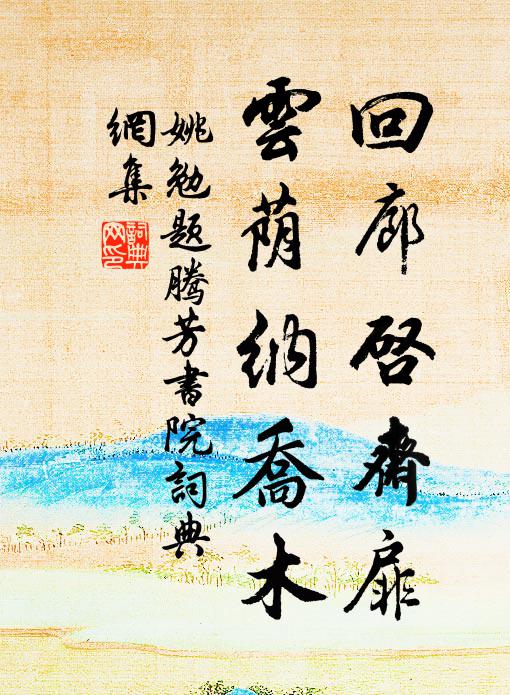 回廊啓齋扉
雲荫納喬木
姚勉題騰芳書院詞典
網集
詞典網印